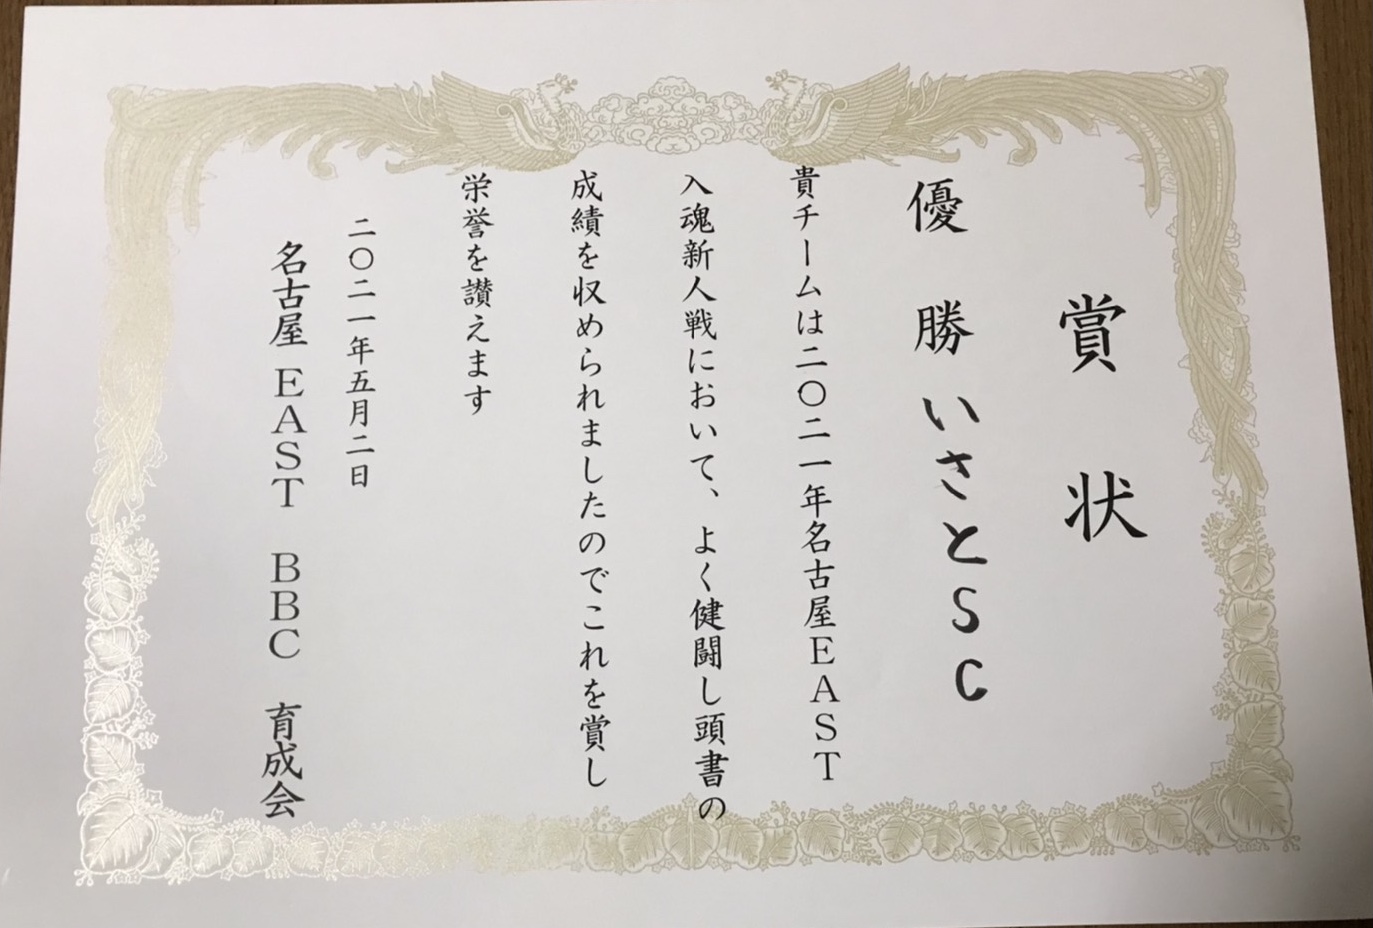 賞状
優勝 いさとSC
貴チームは二〇二一年名古屋EAST
入魂新人戦において、よく健闘し頭書の
成績を収められましたのでこれを賞し
栄誉を讃えます
二〇二一年五月二日
名古屋 EAST BBC 育成会